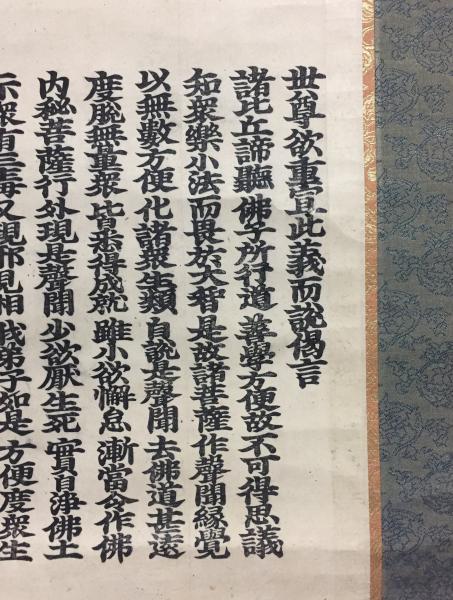 世尊欲重宣此義而說偈言
諸比丘諦聽 佛子所行道 善學方便故 不可得思議
知衆樂小法 而畏於大智 是故諸菩薩 作聲聞緣覺
以無數方便 化諸衆生類 自說是聲聞 去佛道甚遠
度脫無量衆 皆悉得成就 雖小欲懈怠 漸當令作佛
内秘菩薩行 外現是聲聞 少欲厭生死 實自淨佛土
示衆有三毒 又現邪見相 我弟子如是 方便度衆生